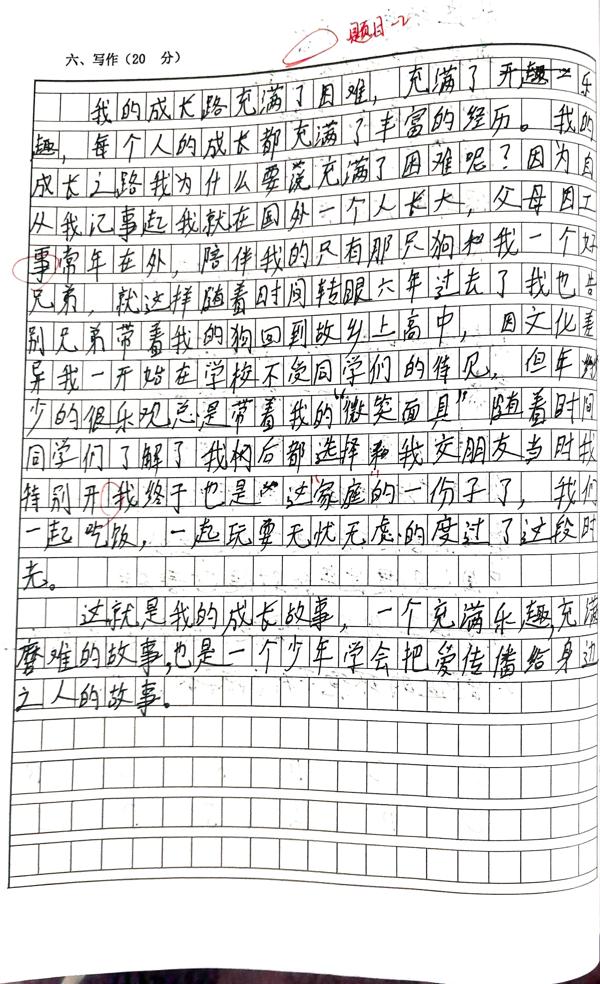 题目-2
六、写作(20 分)
我的成长路充满了困难，充满了开趣乐
趣，每个人的成长都充满了丰富的经历。我的
成长之路我为什么要说充满了困难呢？因为自
从我记事起我就在国外一个人长大，父母因工
事常年在外，陪伴我的只有那只狗和我一个好
兄弟，就这样随着时间转眼六年过去了我也告
别兄弟带着我的狗回到故乡上高中，因文化差
异我一开始在学校不受同学们的待见，但年
少的俱乐观总是带着我的“微笑面具”随着时间
同学们了解了我后都选择和我交朋友当时我
特别开我终于也是“这家庭的一份子了，我们
一起吃饭，一起玩耍无忧无虑的度过了这段时
光。
这就是我的成长故事，一个充满乐趣，充满
磨难的故事，也是一个少年学会把爱传播给身边
之人的故事。